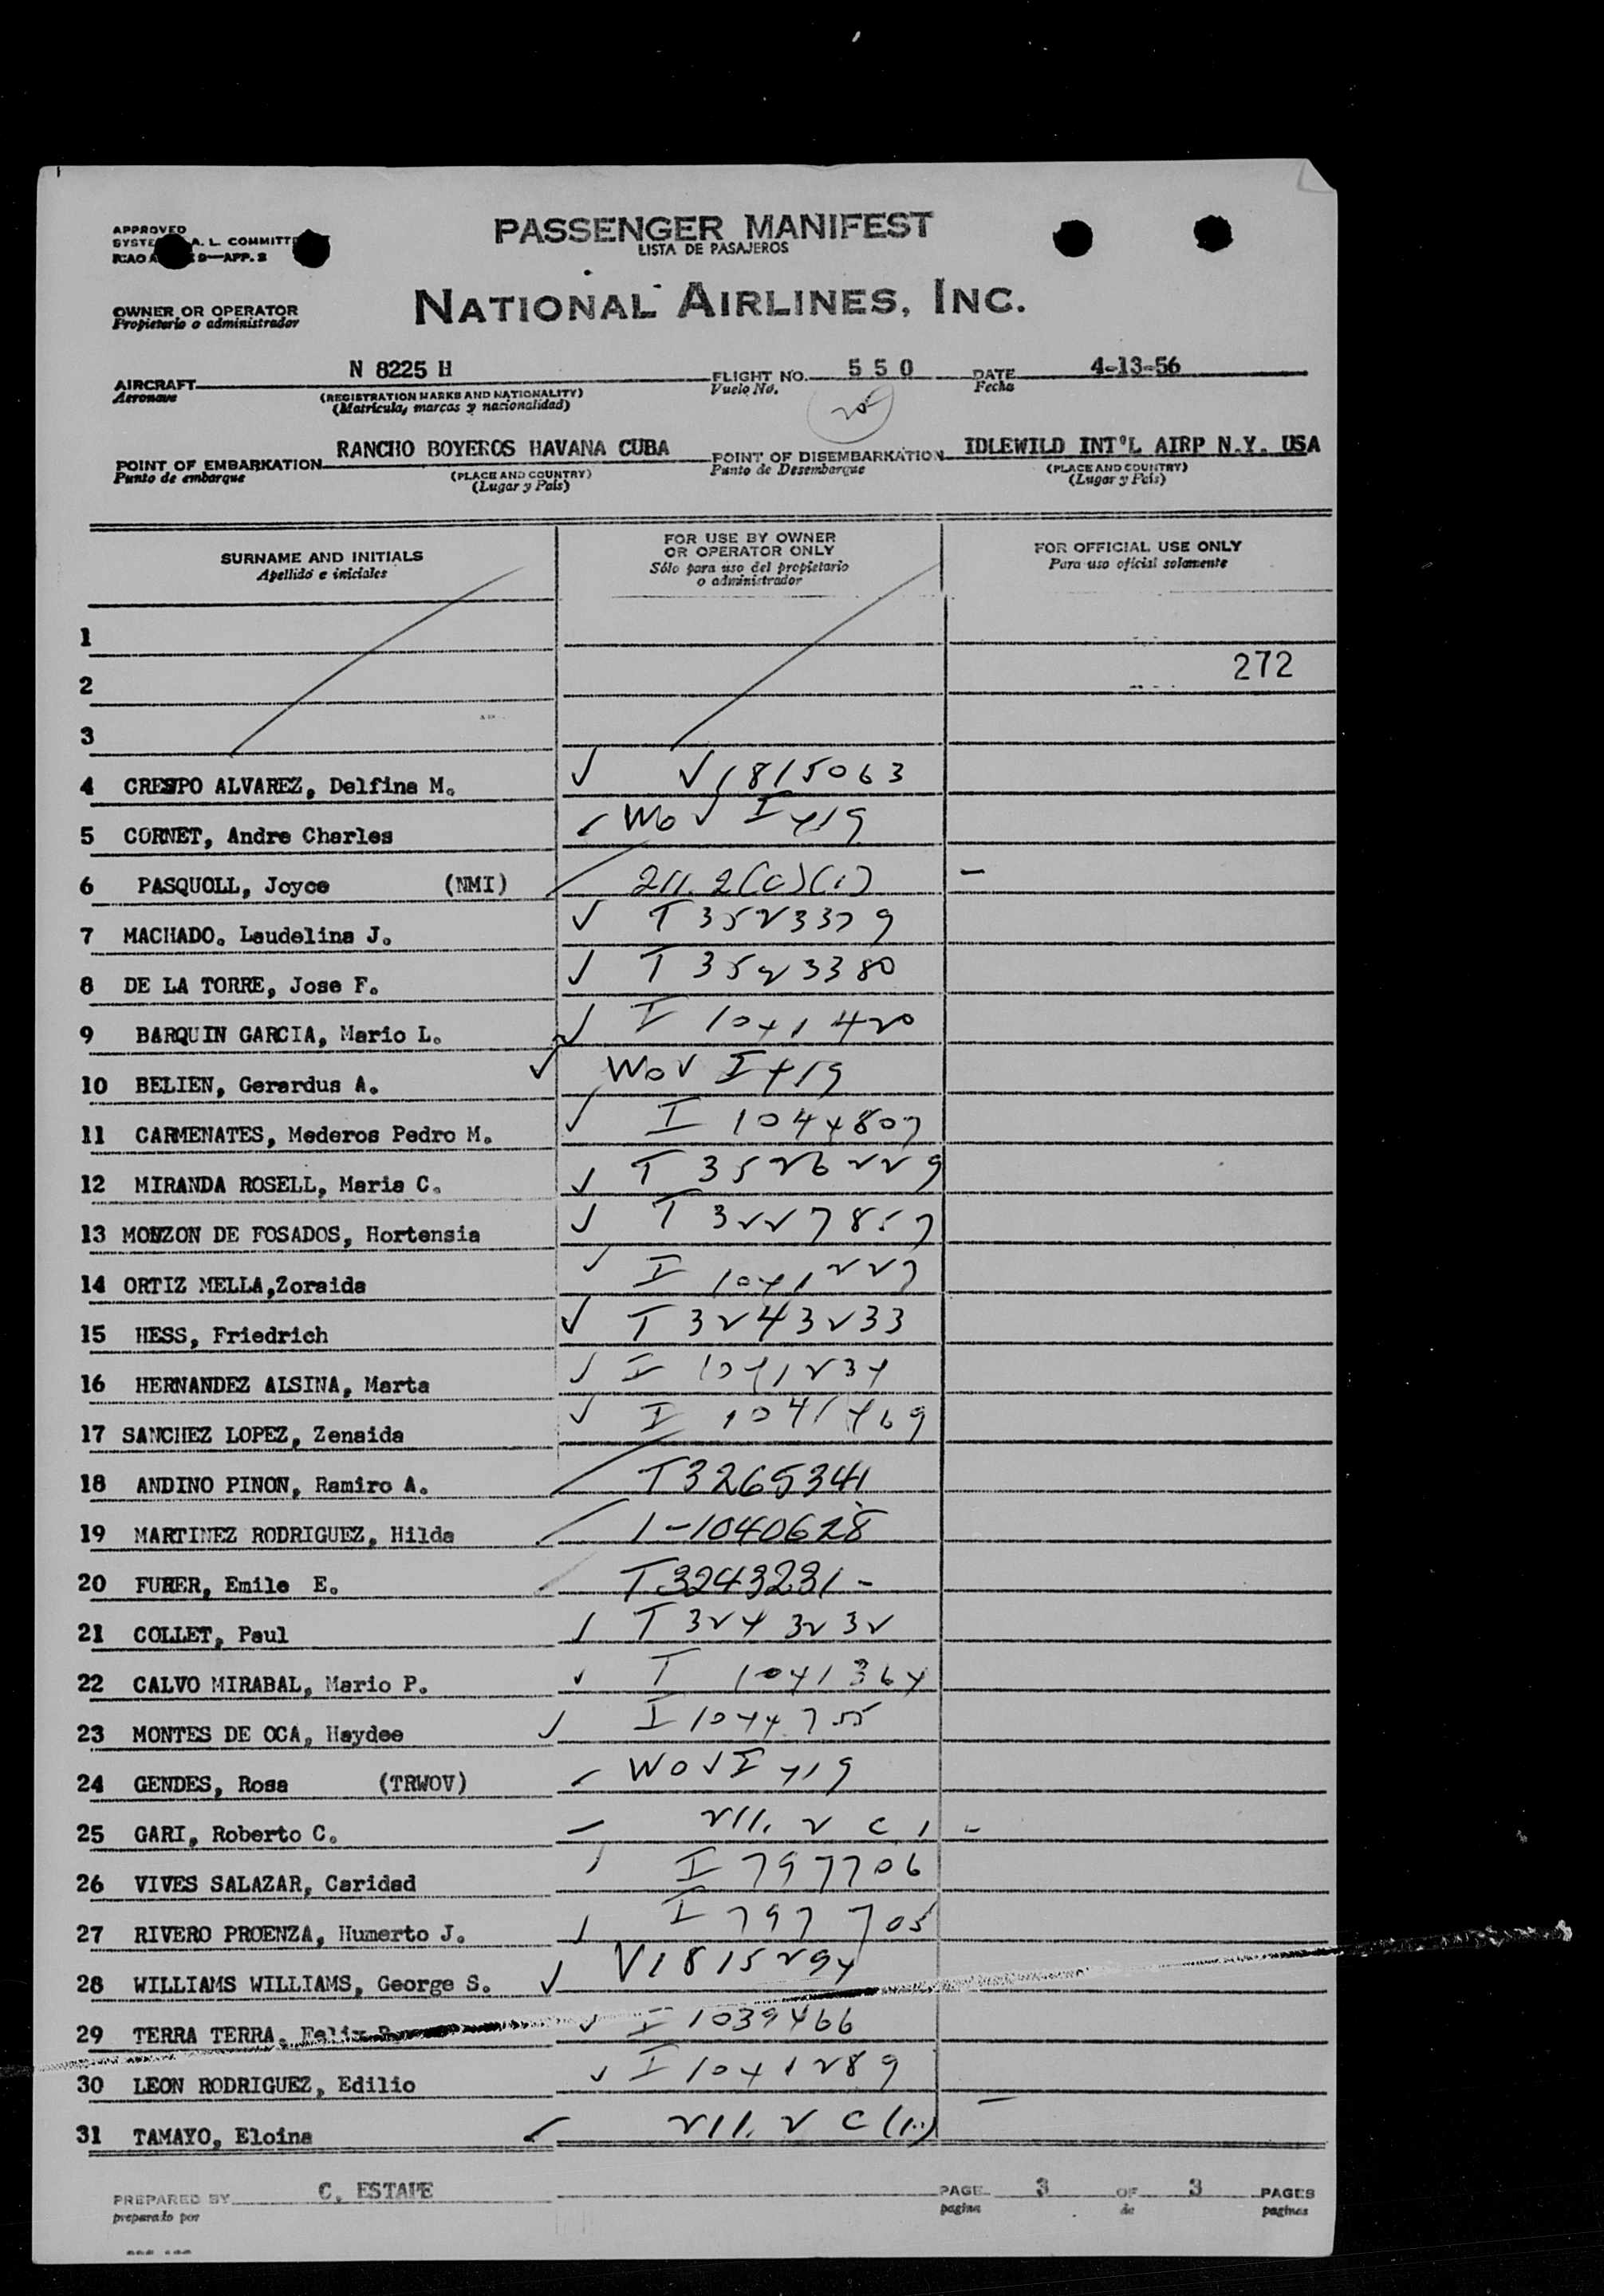 APPROVED
PASSENGER MANIFEST
LISTA DE PASAJEROS
A. L. COMMITT
9—APP. 2
NATIONAL AIRLINES, INC.
OWNER OR OPERATOR
Propietario o administrador
AIRCRAFT N 8225 H FLIGHT NO. 5 5 0 DATE 4-13-56
Aeronave (REGISTRATION MARKS AND NATIONALITY) Vuelo No. Fecha
(Matrícula, marcas y nacionalidad)
POINT OF EMBARKATION RANCHO BOYEROS HAVANA CUBA POINT OF DISEMBARKATION IDLEWILD INT'L AIRP N.Y. USA
Punto de embarque (PLACE AND COUNTRY) Punto de Desembarque (PLACE AND COUNTRY)
(Lugar y País) (Lugar y País)
SURNAME AND INITIALS FOR USE BY OWNER OR OPERATOR ONLY FOR OFFICIAL USE ONLY
Apellido e iniciales Sólo para uso del propietario o administrador Para uso oficial solamente
1
2 272
3
4 CRESPO ALVAREZ, Delfina M. V1815063
5 CORNET, Andre Charles WOV I 419
6 PASQUOLL, Joyce (NMI) 211.2(c)(1) -
7 MACHADO. Laudelina J. T 3523379
8 DE LA TORRE, Jose F. T 3523380
9 BARQUIN GARCIA, Mario L. I 1041420
10 BELIEN, Gerardus A. WOV I 419
11 CARMENATES, Mederos Pedro M. I 1044807
12 MIRANDA ROSELL, Maria C. T 3526229
13 MONZON DE FOSADOS, Hortensia T 3227857
14 ORTIZ MELLA,Zoraida I 1041227
15 HESS, Friedrich T 3243233
16 HERNANDEZ ALSINA, Marta I 1041234
17 SANCHEZ LOPEZ, Zenaida I 1041469
18 ANDINO PINON, Ramiro A. T3265341
19 MARTINEZ RODRIGUEZ, Hilda I-1040628
20 FURER, Emile E. T3243231 -
21 COLLET, Paul T 3243232
22 CALVO MIRABAL, Mario P. I 1041364
23 MONTES DE OCA, Haydee I 1044755
24 GENDES, Rosa (TRWOV) WOV I 419
25 GARI, Roberto C. 211. 2 C 1 -
26 VIVES SALAZAR, Caridad I 797706
27 RIVERO PROENZA, Humerto J. I 797705
28 WILLIAMS WILLIAMS, George S. V1815294
29 TERRA TERRA, Felix I 1039466
30 LEON RODRIGUEZ, Edilio I 1041289
31 TAMAYO, Eloina 211. 2 C (1) -
PREPARED BY C. ESTAPE PAGE 3 OF 3 PAGES
preparado por pagina de paginas